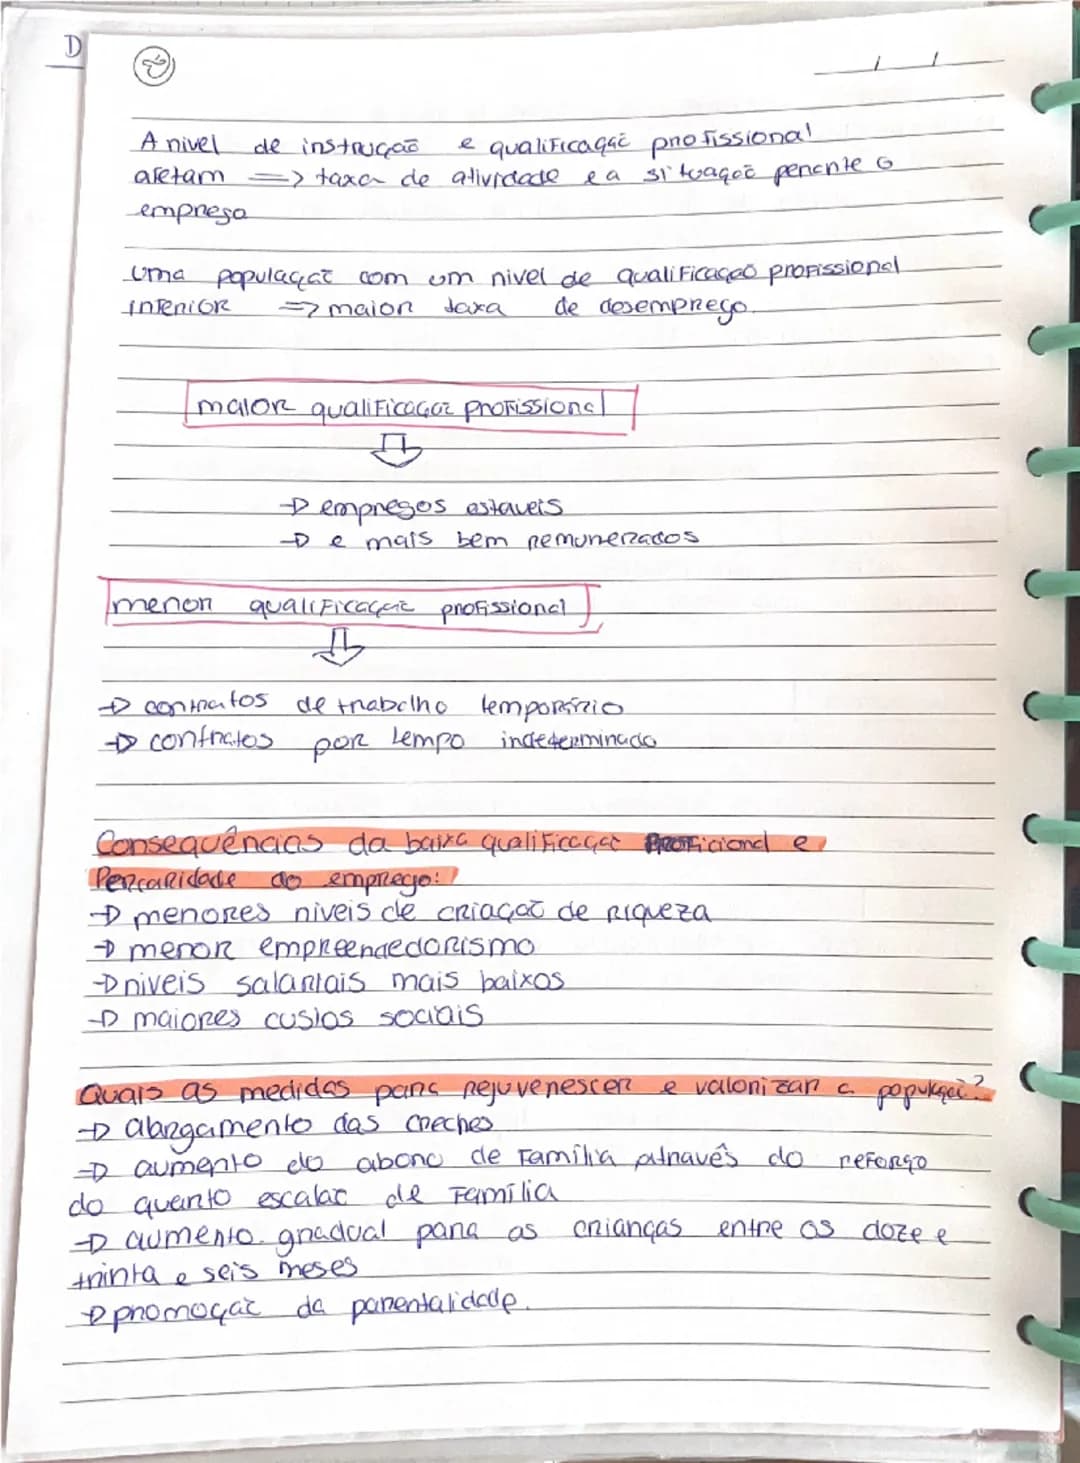 D
2
A nivel de instrução e qualificação profissional
afetam => taxa de atividade e a situação perante o
emprego
Uma população com um nivel de qualificação profissional
inferior => maior taxa de desemprego.
maior qualificação profissional
⇩
→ empregos estaveis
→ e mais bem remunerados
menor qualificação profissional
⇩
→ contratos de trabalho temporário
→ contratos por tempo indeterminado
Consequências da baixa qualificação proficional e
Percaridade do emprego:
→ menores niveis de criação de riqueza
→ menor empreendedorismo
→ niveis salariais mais baixos
→ maiores custos sociais
Quais as medidas para rejuvenescer e valorizar a população?
→ alargamento das creches
→ aumento do abono de família através do reforço
do quarto escalão de família
→ aumento gradual para as crianças entre os doze e
trinta e seis meses
→ promoção da parentalidade.